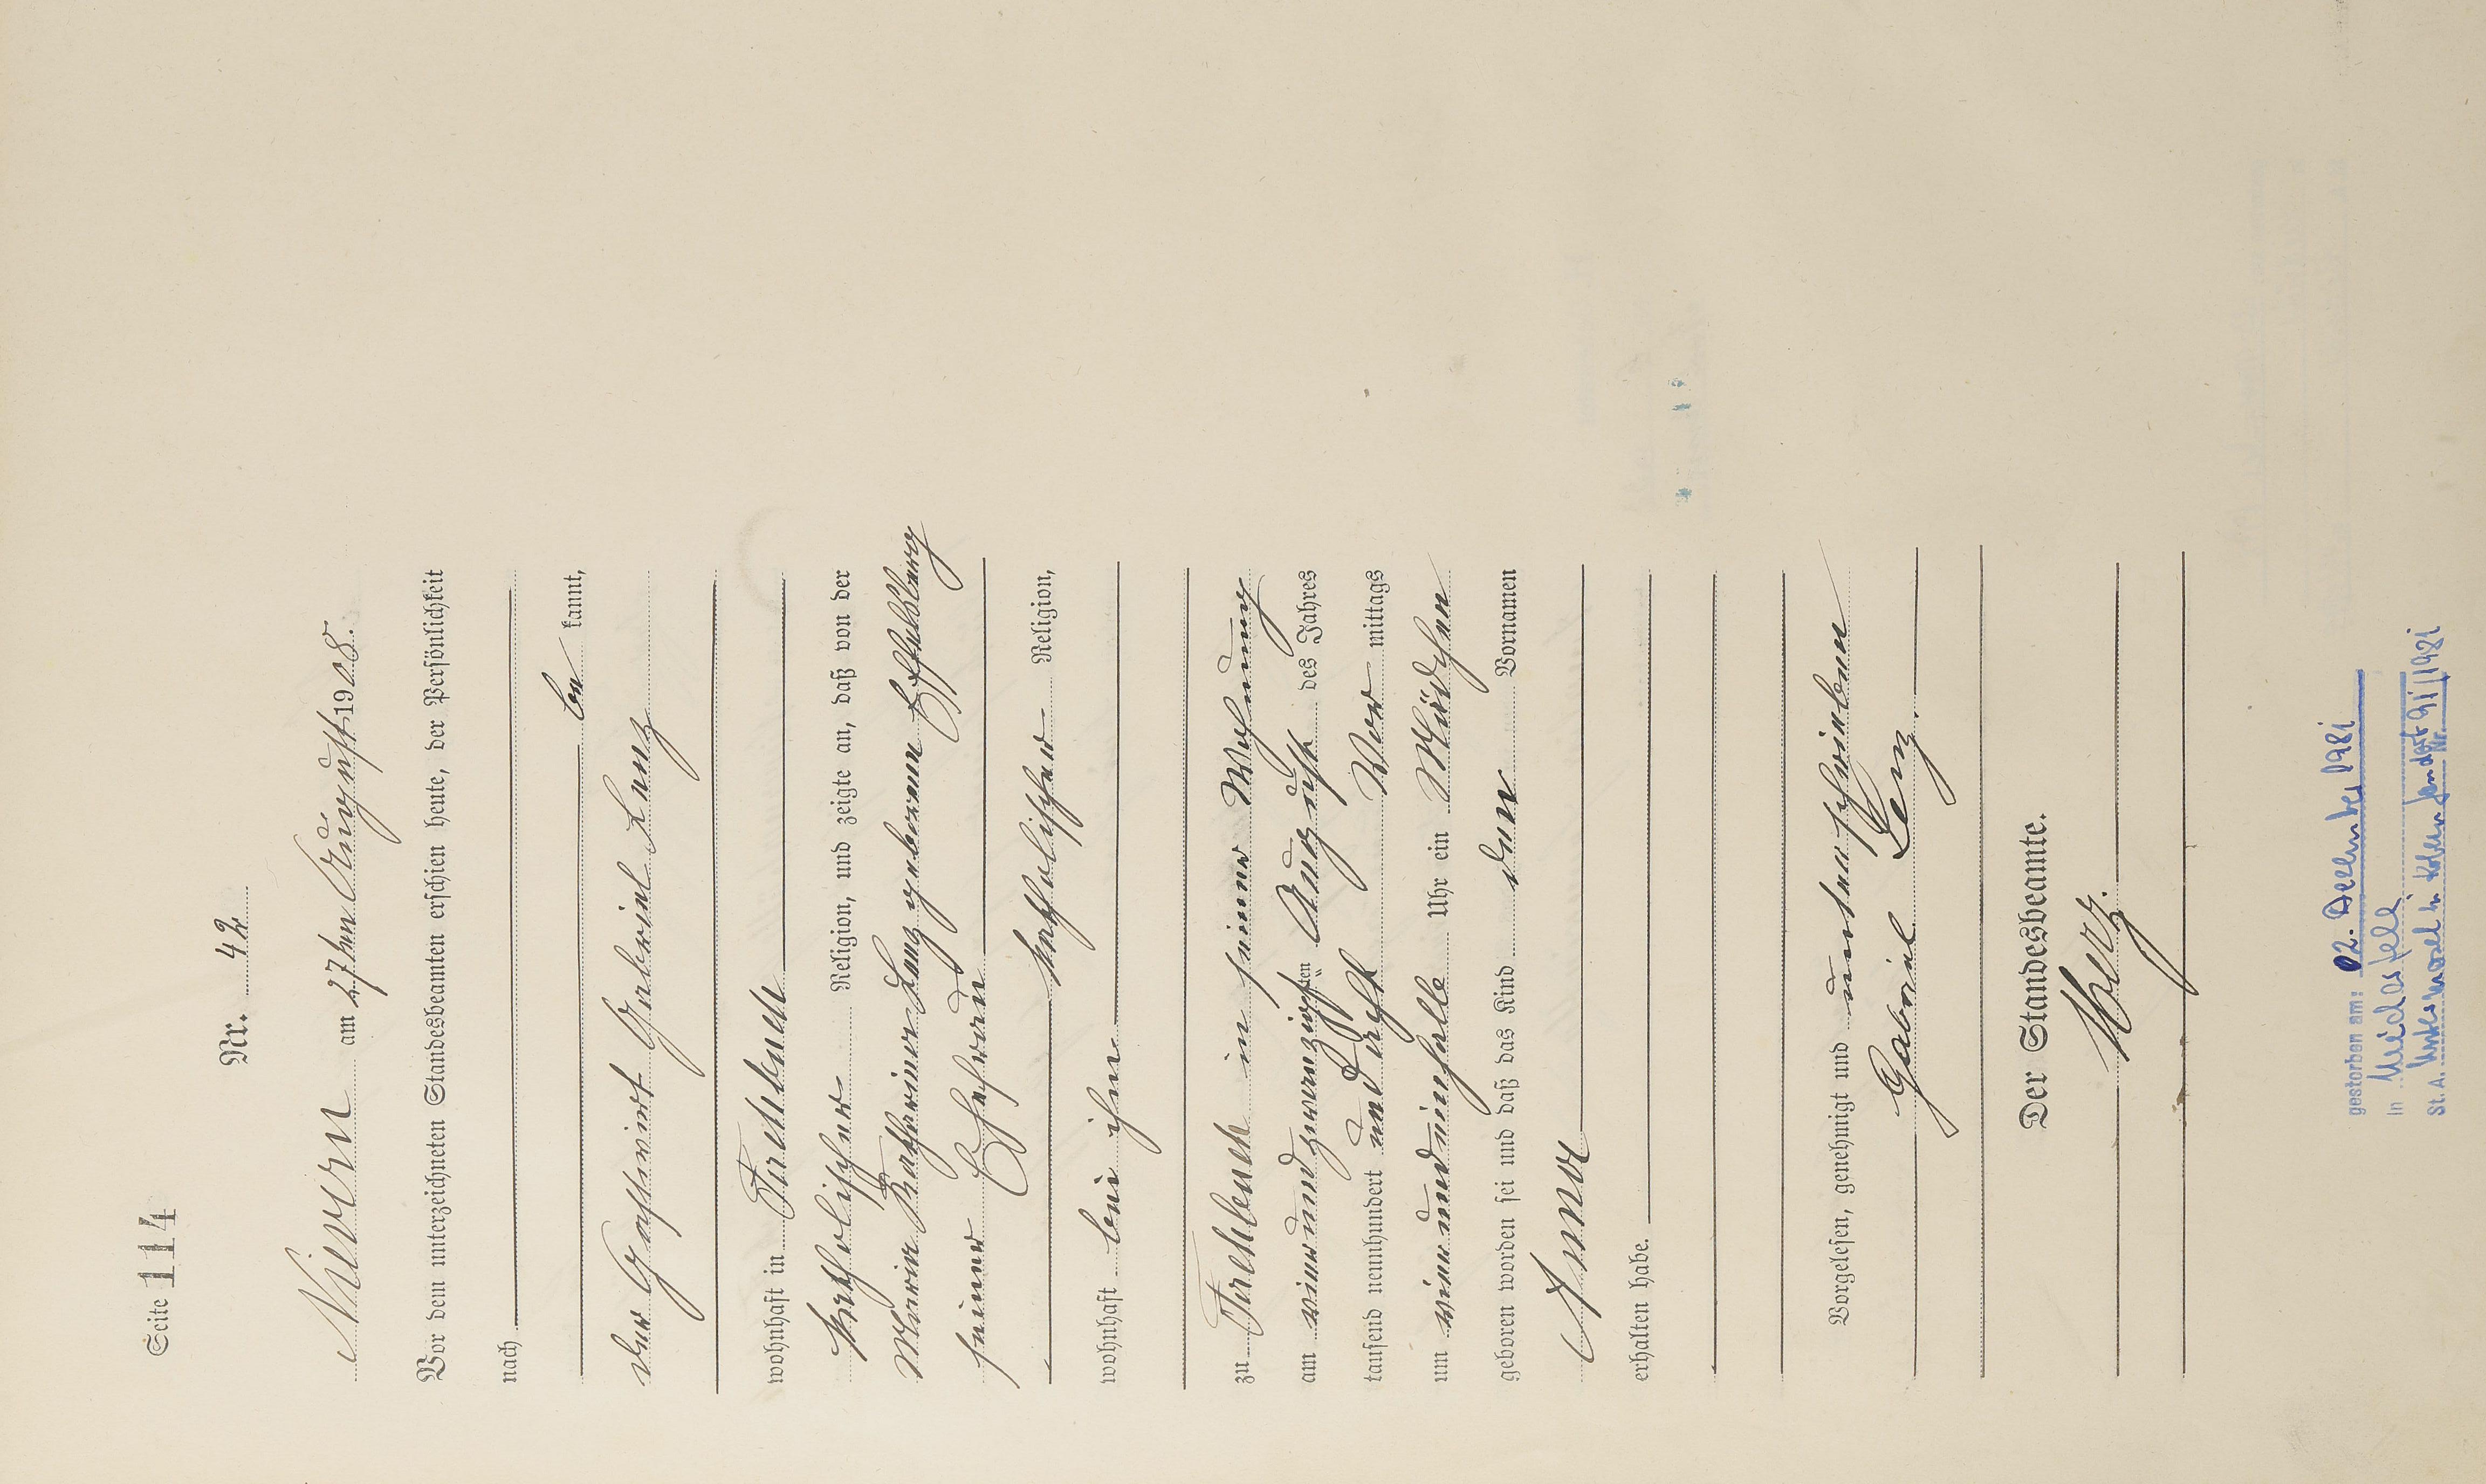 Seite 114
Nr. 42
Nievern am 27ten August 1908.
Vor dem unterzeichneten Standesbeamten erschien heute, der Persönlichkeit
nach
be kannt,
der Gastwirt Gabriel Lenz
wohnhaft in Fachbach
katholischer Religion, und zeigte an, daß von der
Maria Katharina Lenz geborenen
seiner Ehefrau
katholischer Religion,
wohnhaft bei ihm
zu Fachbach in seiner Wohnung
am vierundzwanzigsten August des Jahres
tausend neunhundert und acht Vor mittags
um vier und einhalb Uhr ein Mädchen
geboren worden sei und daß das Kind den Vornamen
Anna
erhalten habe.
Vorgelesen, genehmigt und unterschrieben
Gabriel Lenz.
Der Standesbeamte.
Herz.
gestorben am: 02. Dezember 1981
in
St. A. Nr. 91/1981